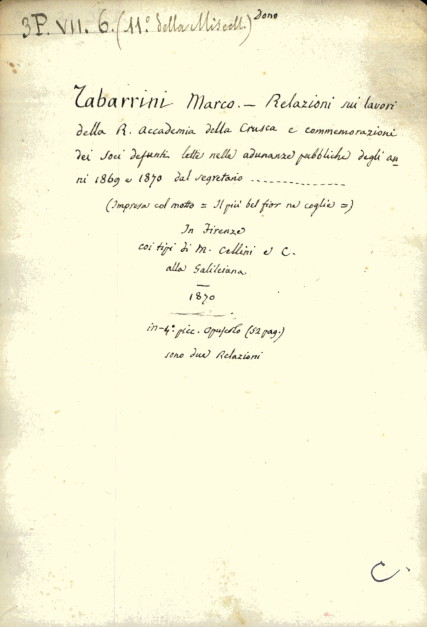 3P. VII. 6. (11º della Miscell.) Dono
Tabarrini Marco. — Relazioni sui lavori
della R. Accademia della Crusca e commemorazioni
dei soci defunti lette nelle adunanze pubbliche degli an=
ni 1869 e 1870 dal segretario ................
(Impresa col motto = Il più bel fior ne coglie =)
In Firenze
coi tipi di M. Cellini e C.
alla Galileiana
1870
in-4º picc. Opuscolo (52 pag.)
sono due Relazioni
C.